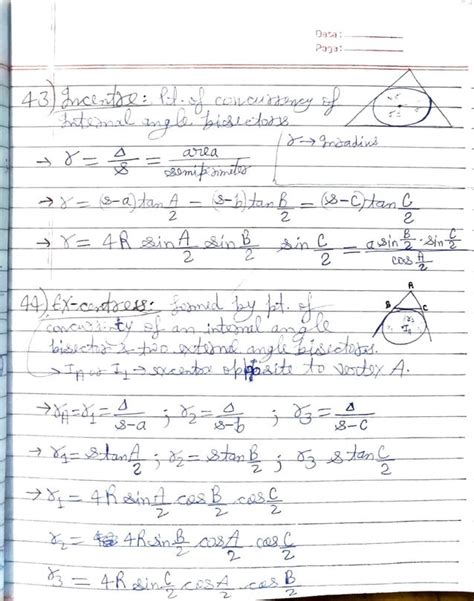 Date:
Page:
43) Incentre: Pt. of concurrency of
Internal angle bisectors
r → Inradius
→ r = Δ/s = area/semiperimeter
→ r = (s-a)tan A/2 = (s-b)tan B/2 = (s-c)tan C/2
→ r = 4R sin A/2 sin B/2 sin C/2 = a sin B/2 · sin C/2 / cos A/2
44) Ex-centress: formed by pt. of
A
B C
I₁
concurrinty of an internal angle
bisector & two external angle bisectors.
→ I_A or I₁ → excentre opposite to vertex A.
→ r_A = r₁ = Δ/s-a ; r₂ = Δ/s-b ; r₃ = Δ/s-c
→ r₁ = s tan A/2 ; r₂ = s tan B/2 ; r₃ s tan C/2
→ r₁ = 4R sin A/2 cos B/2 cos C/2
r₂ = 4R sin B/2 cos A/2 cos C/2
r₃ = 4R sin C/2 cos A/2 cos B/2